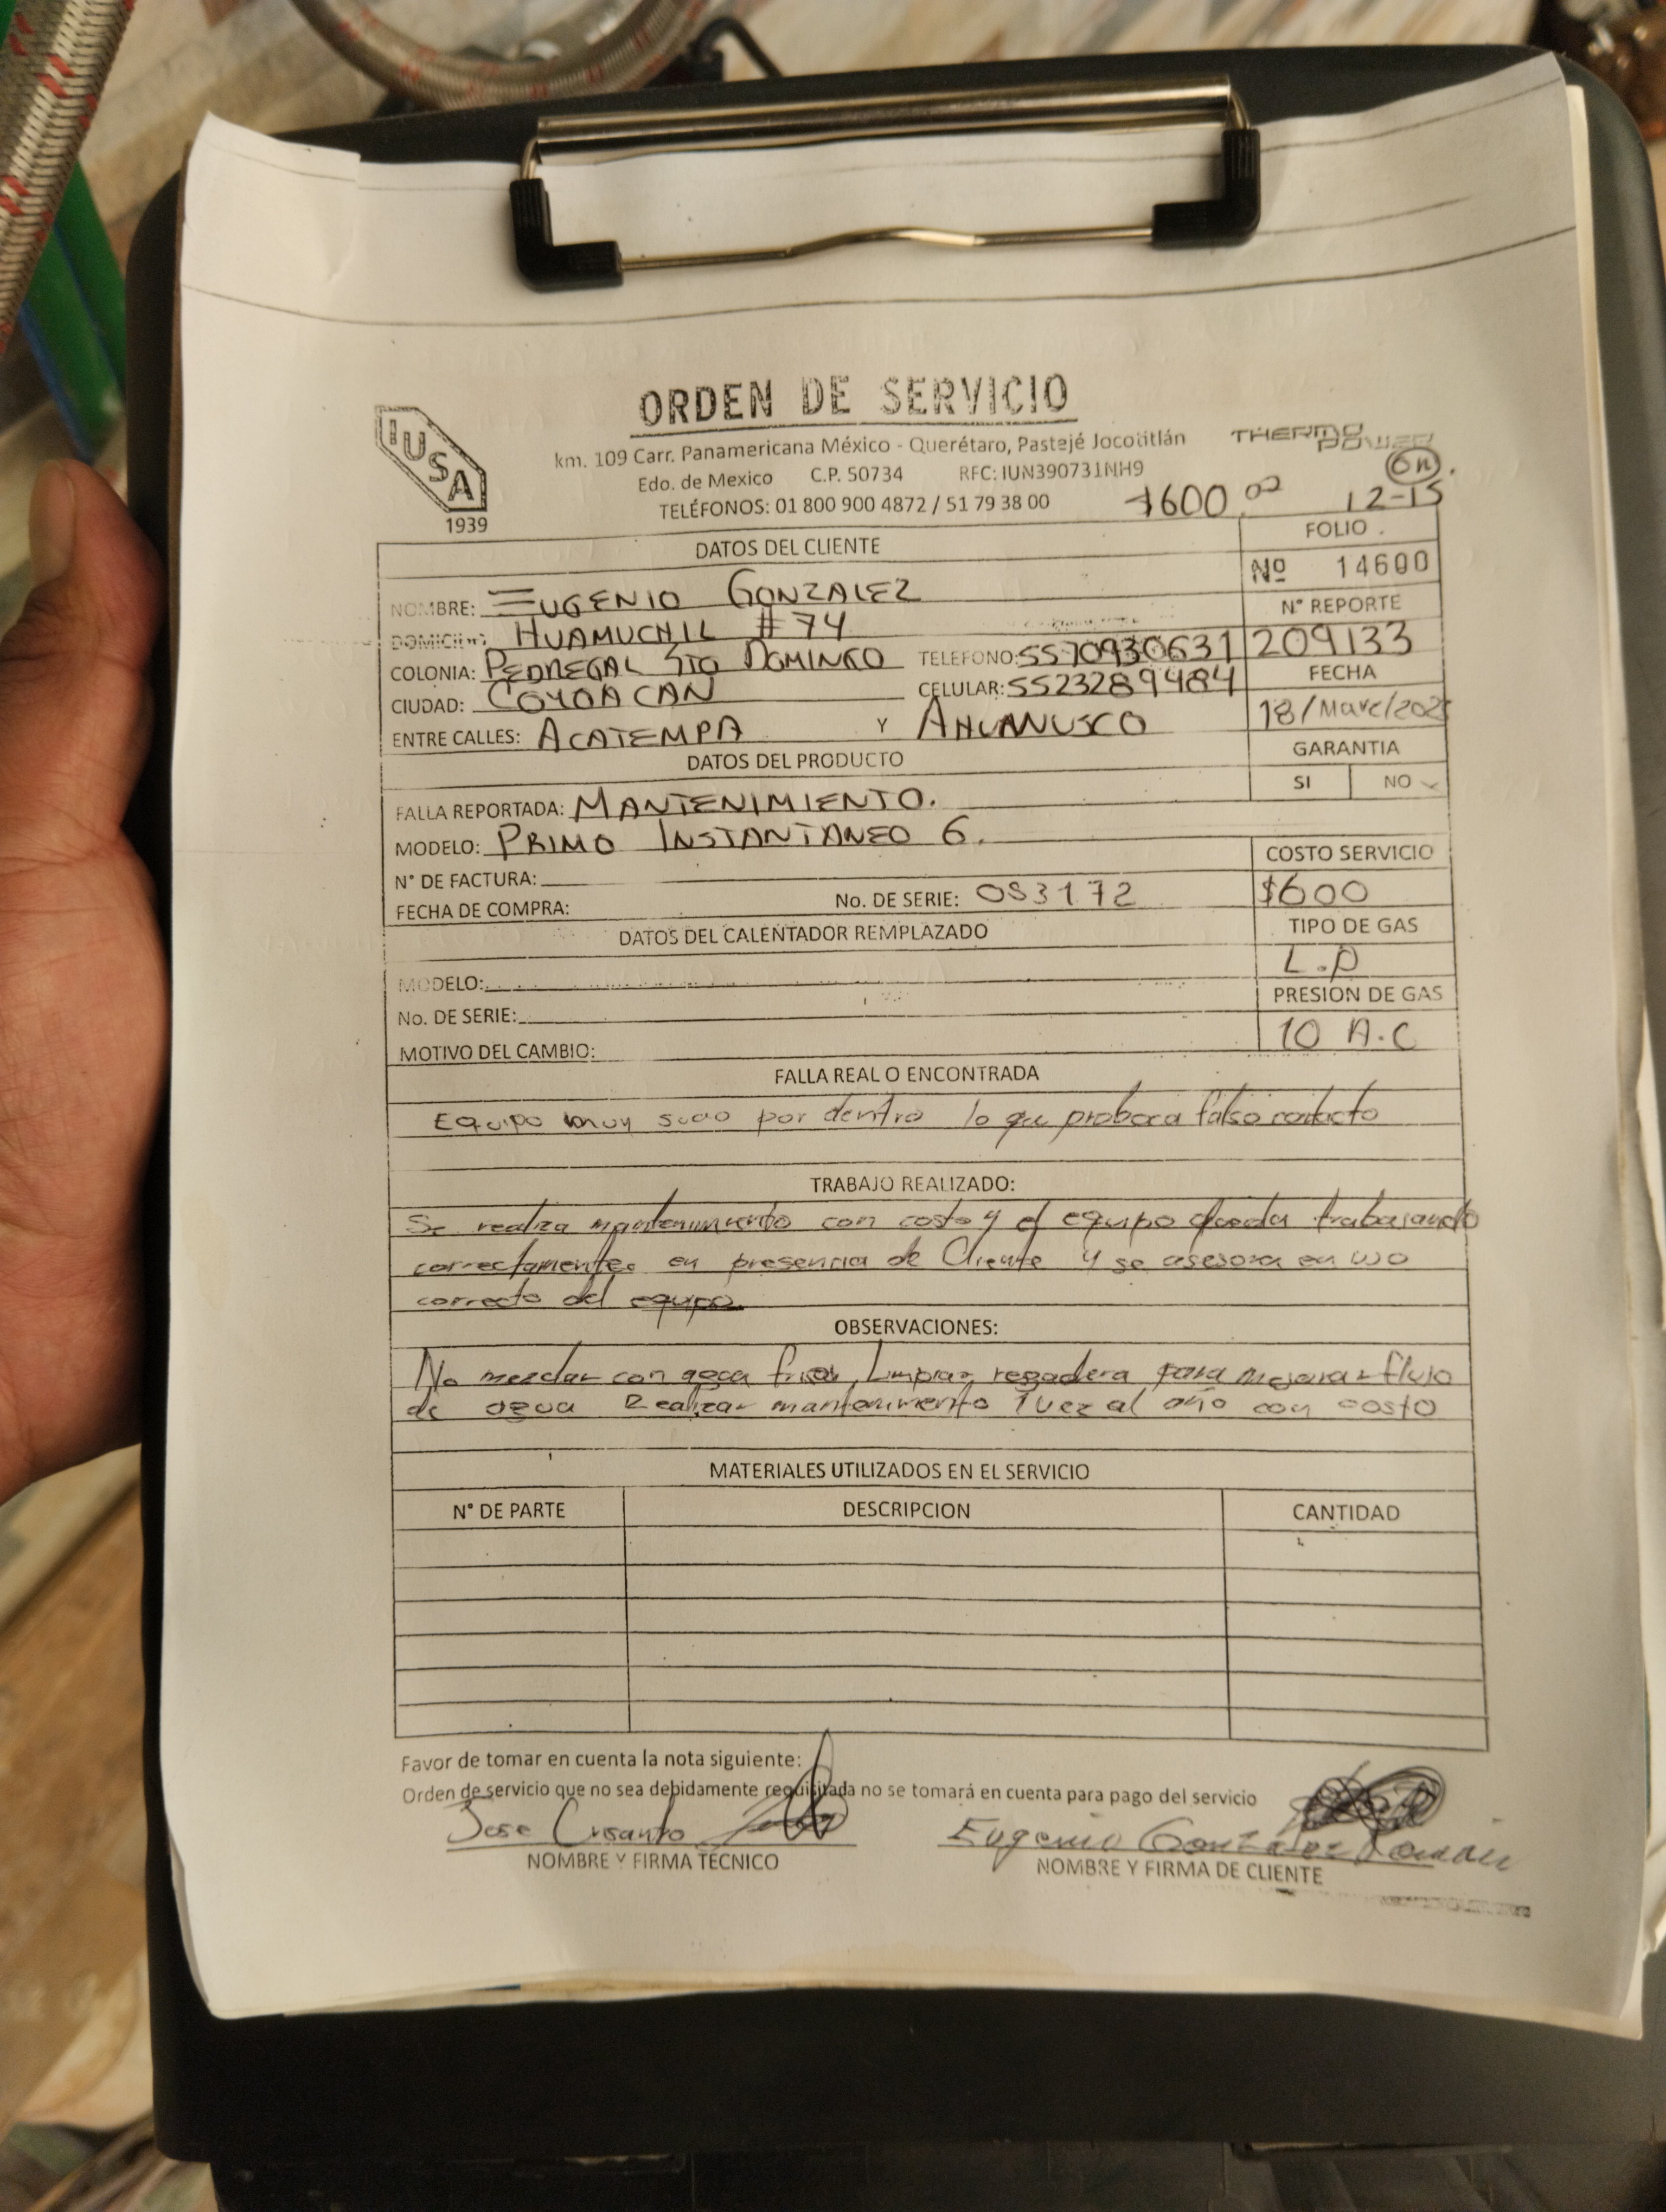 ORDEN DE SERVICIO
IUSA
1939
km. 109 Carr. Panamericana México - Querétaro, Pastejé Jocotitlán
THERMO POWER
Edo. de Mexico C.P. 50734 RFC: IUN390731NH9
6n.
TELÉFONOS: 01 800 900 4872 / 51 79 38 00
$600.00 12-15
DATOS DEL CLIENTE
FOLIO
Nº 14600
NOMBRE: EUGENIO GONZALEZ
N° REPORTE
DOMICILIO: HUAMUCHIL #74
209133
COLONIA: PEDREGAL STO DOMINGO TELEFONO: 5570930631
FECHA
CIUDAD: COYOACAN CELULAR: 5523289484
18/Marz/202
ENTRE CALLES: ACATEMPA Y
DATOS DEL PRODUCTO
GARANTIA
SI NO ✓
FALLA REPORTADA: MANTENIMIENTO.
MODELO: PRIMO INSTANTANEO 6.
COSTO SERVICIO
N° DE FACTURA:
$600
FECHA DE COMPRA: No. DE SERIE: 083172
DATOS DEL CALENTADOR REMPLAZADO
TIPO DE GAS
L.P
MODELO:
PRESION DE GAS
No. DE SERIE:
10 A.C
MOTIVO DEL CAMBIO:
FALLA REAL O ENCONTRADA
Equipo muy sucio por dentro lo que proboca falso contacto
TRABAJO REALIZADO:
Se realiza mantenimiento con costo y el equipo queda trabajando
correctamente en presencia de Cliente y se asesora en uso
correcto del equipo.
OBSERVACIONES:
No mezclar con agua fria, Limpiar regadera para mejorar flujo
de agua Realizar mantenimiento 1 vez al año con costo
MATERIALES UTILIZADOS EN EL SERVICIO
N° DE PARTE DESCRIPCION CANTIDAD
Favor de tomar en cuenta la nota siguiente:
Orden de servicio que no sea debidamente requisitada no se tomará en cuenta para pago del servicio
Jose Crisanto
Eugenio Gonzalez Roman
NOMBRE Y FIRMA TÉCNICO
NOMBRE Y FIRMA DE CLIENTE